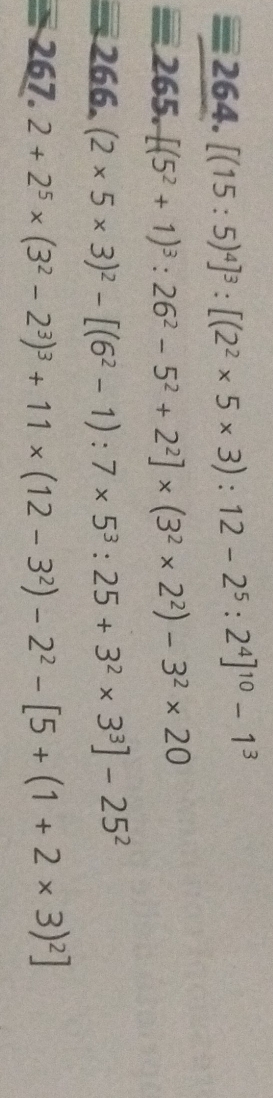 264. [(15 : 5)⁴]³ : [(2² × 5 × 3) : 12 − 2⁵ : 2⁴]¹⁰ − 1³
265. [(5² + 1)³ : 26² − 5² + 2²] × (3² × 2²) − 3² × 20
266. (2 × 5 × 3)² − [(6² − 1) : 7 × 5³ : 25 + 3² × 3³] − 25²
267. 2 + 2⁵ × (3² − 2³)³ + 11 × (12 − 3²) − 2² − [5 + (1 + 2 × 3)²]